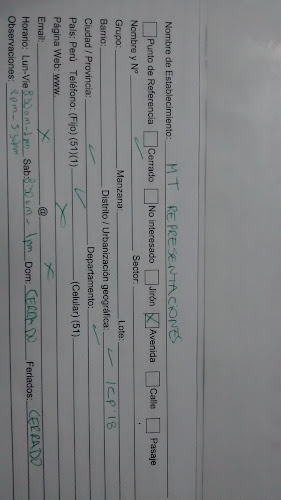 Nombre de Establecimiento: MT REPRESENTACIONES
Punto de Referencia Cerrado No interesado Jirón X Avenida Calle Pasaje
Nombre y Nº Sector:
Grupo: Manzana: Lote: ICP 18
Barrio: Distrito / Urbanización geográfica:
Ciudad / Provincia: Departamento:
País: Perú Teléfono: (Fijo) (51)(1) (Celular) (51)
Página Web: www. X
Email: X @ X
Horario: Lun-Vie 8:30am-1pm Sab: 8:30am-1pm Dom: CERRADO Feriados: CERRADO
Observaciones: